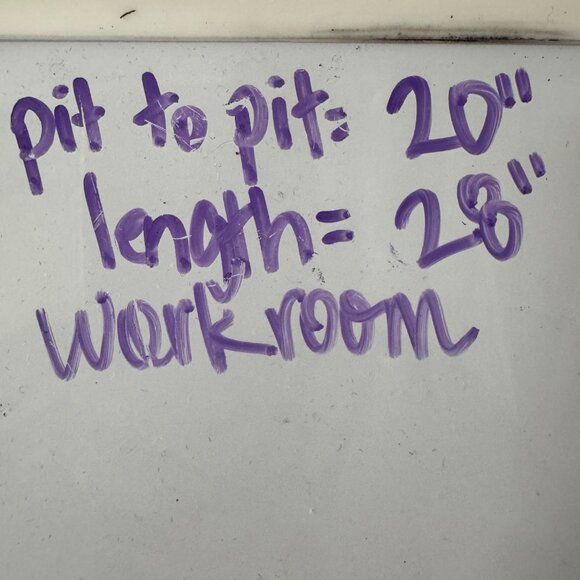 pit to pit: 20"
length = 28"
workroom